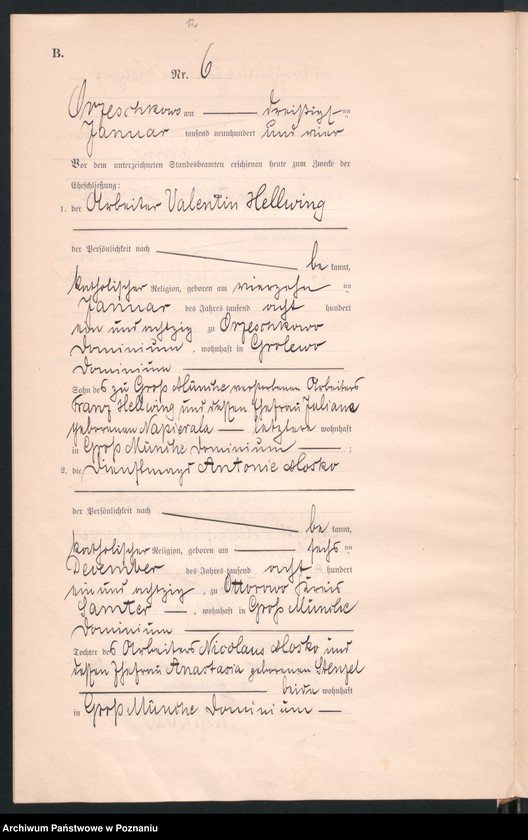 12
B.
Nr. 6
Orzeschkowo am dreißigsten
Januar tausend neunhundert und vier
Vor dem unterzeichneten Standesbeamten erschienen heute zum Zwecke der
Eheschließung:
1. der Arbeiter Valentin Hellwing
der Persönlichkeit nach
be kannt,
katholischer Religion, geboren am vierzehn ten
Januar des Jahres tausend acht hundert
ein und achtzig zu Orzeschkowo
Dominium, wohnhaft in Grolewo
Dominium
Sohn des zu Groß Münche verstorbenen Arbeiters
Franz Hellwing und dessen Ehefrau Juliana
geborenen Napierala — letztere wohnhaft
in Groß Münche Dominium — ;
2. die Dienstmagd Antonie Mosko
der Persönlichkeit nach
be kannt,
katholischer Religion, geboren am sechs ten
December des Jahres tausend acht hundert
ein und achtzig, zu Ottorowo Kreis
Samter —, wohnhaft in Groß Münche
Dominium
Tochter des Arbeiters Nicolaus Mosko und
dessen Ehefrau Anastasia geborenen Stenzel
beide wohnhaft
in Groß Münche Dominium —
Archiwum Państwowe w Poznaniu